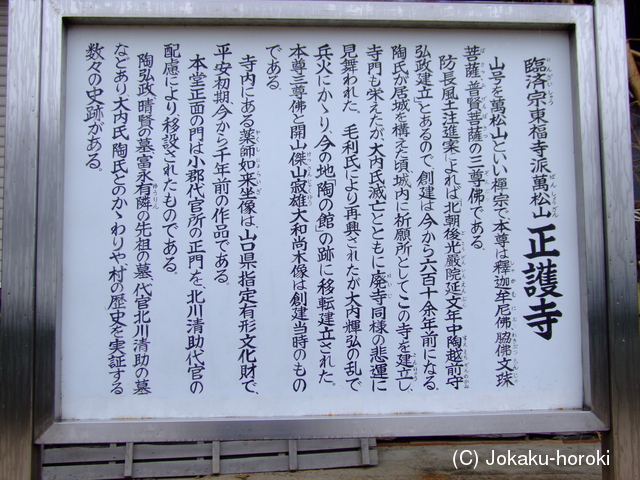 臨済宗東福寺派萬松山 正護寺
山号を萬松山といい禅宗で、本尊は釋迦牟尼佛、脇佛文珠
菩薩、普賢菩薩の三尊佛である。
防長風土注進案によれば「北朝後光厳院延文年中陶越前守
弘政建立」とあるので、創建は今から六百十余年前になる。
陶氏が居城を構えた頃、城内に祈願所としてこの寺を建立し、
寺門も栄えたが、大内氏滅亡とともに廃寺同様の悲運に
見舞われた。毛利氏により再興されたが大内輝弘の乱で
兵火にかゝり、今の地「陶の館」の跡に移転建立された。
本尊三尊佛と開山傑山寂雄大和尚木像は創建当時のもの
である。
寺内にある薬師如来坐像は、山口県指定有形文化財で、
平安初期、今から千年前の作品である。
本堂正面の門は小郡代官所の正門を、北川清助代官の
配慮により、移設されたものである。
陶弘政、晴賢の墓、富永有隣の先祖の墓、代官北川清助の墓
などあり、大内氏、陶氏とのかゝわりや村の歴史を実証する
数々の史跡がある。
(C) Jokaku-horoki